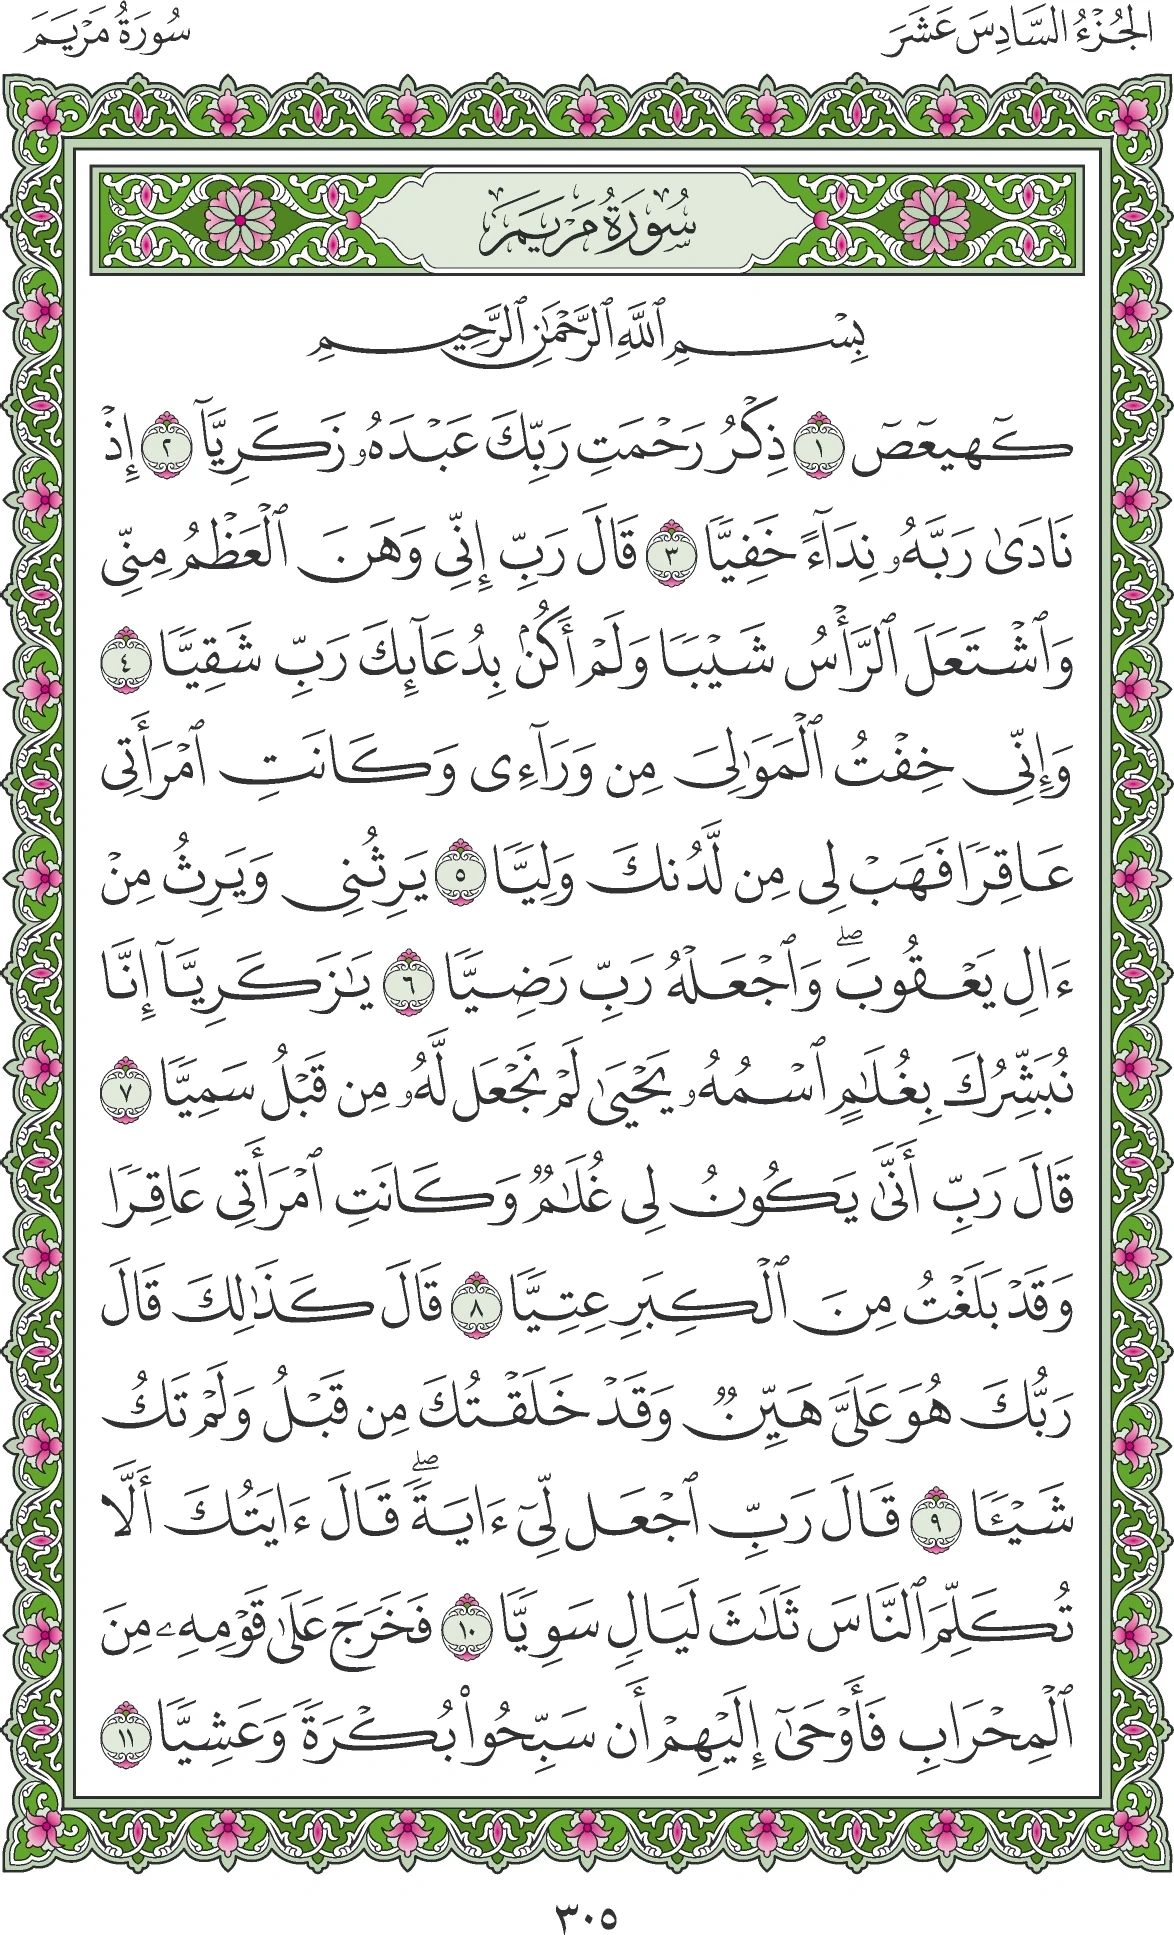 الجُزْءُ السَّادِسَ عَشَرَ
سُورَةُ مَرْيَمَ
سُورَةُ مَرْيَمَ
بِسْمِ ٱللَّهِ ٱلرَّحْمَٰنِ ٱلرَّحِيمِ
كٓهيعٓصٓ ١ ذِكْرُ رَحْمَتِ رَبِّكَ عَبْدَهُۥ زَكَرِيَّآ ٢ إِذْ
نَادَىٰ رَبَّهُۥ نِدَآءً خَفِيًّا ٣ قَالَ رَبِّ إِنِّى وَهَنَ ٱلْعَظْمُ مِنِّى
وَٱشْتَعَلَ ٱلرَّأْسُ شَيْبًا وَلَمْ أَكُنۢ بِدُعَآئِكَ رَبِّ شَقِيًّا ٤
وَإِنِّى خِفْتُ ٱلْمَوَٰلِىَ مِن وَرَآءِى وَكَانَتِ ٱمْرَأَتِى
عَاقِرًا فَهَبْ لِى مِن لَّدُنكَ وَلِيًّا ٥ يَرِثُنِى وَيَرِثُ مِنْ
ءَالِ يَعْقُوبَۖ وَٱجْعَلْهُ رَبِّ رَضِيًّا ٦ يَٰزَكَرِيَّآ إِنَّا
نُبَشِّرُكَ بِغُلَٰمٍ ٱسْمُهُۥ يَحْيَىٰ لَمْ نَجْعَل لَّهُۥ مِن قَبْلُ سَمِيًّا ٧
قَالَ رَبِّ أَنَّىٰ يَكُونُ لِى غُلَٰمٌ وَكَانَتِ ٱمْرَأَتِى عَاقِرًا
وَقَدْ بَلَغْتُ مِنَ ٱلْكِبَرِ عِتِيًّا ٨ قَالَ كَذَٰلِكَ قَالَ
رَبُّكَ هُوَ عَلَىَّ هَيِّنٌ وَقَدْ خَلَقْتُكَ مِن قَبْلُ وَلَمْ تَكُ
شَيْـًٔا ٩ قَالَ رَبِّ ٱجْعَل لِّىٓ ءَايَةًۖ قَالَ ءَايَتُكَ أَلَّا
تُكَلِّمَ ٱلنَّاسَ ثَلَٰثَ لَيَالٍ سَوِيًّا ١٠ فَخَرَجَ عَلَىٰ قَوْمِهِۦ مِنَ
ٱلْمِحْرَابِ فَأَوْحَىٰٓ إِلَيْهِمْ أَن سَبِّحُوا۟ بُكْرَةً وَعَشِيًّا ١١
٣٠٥